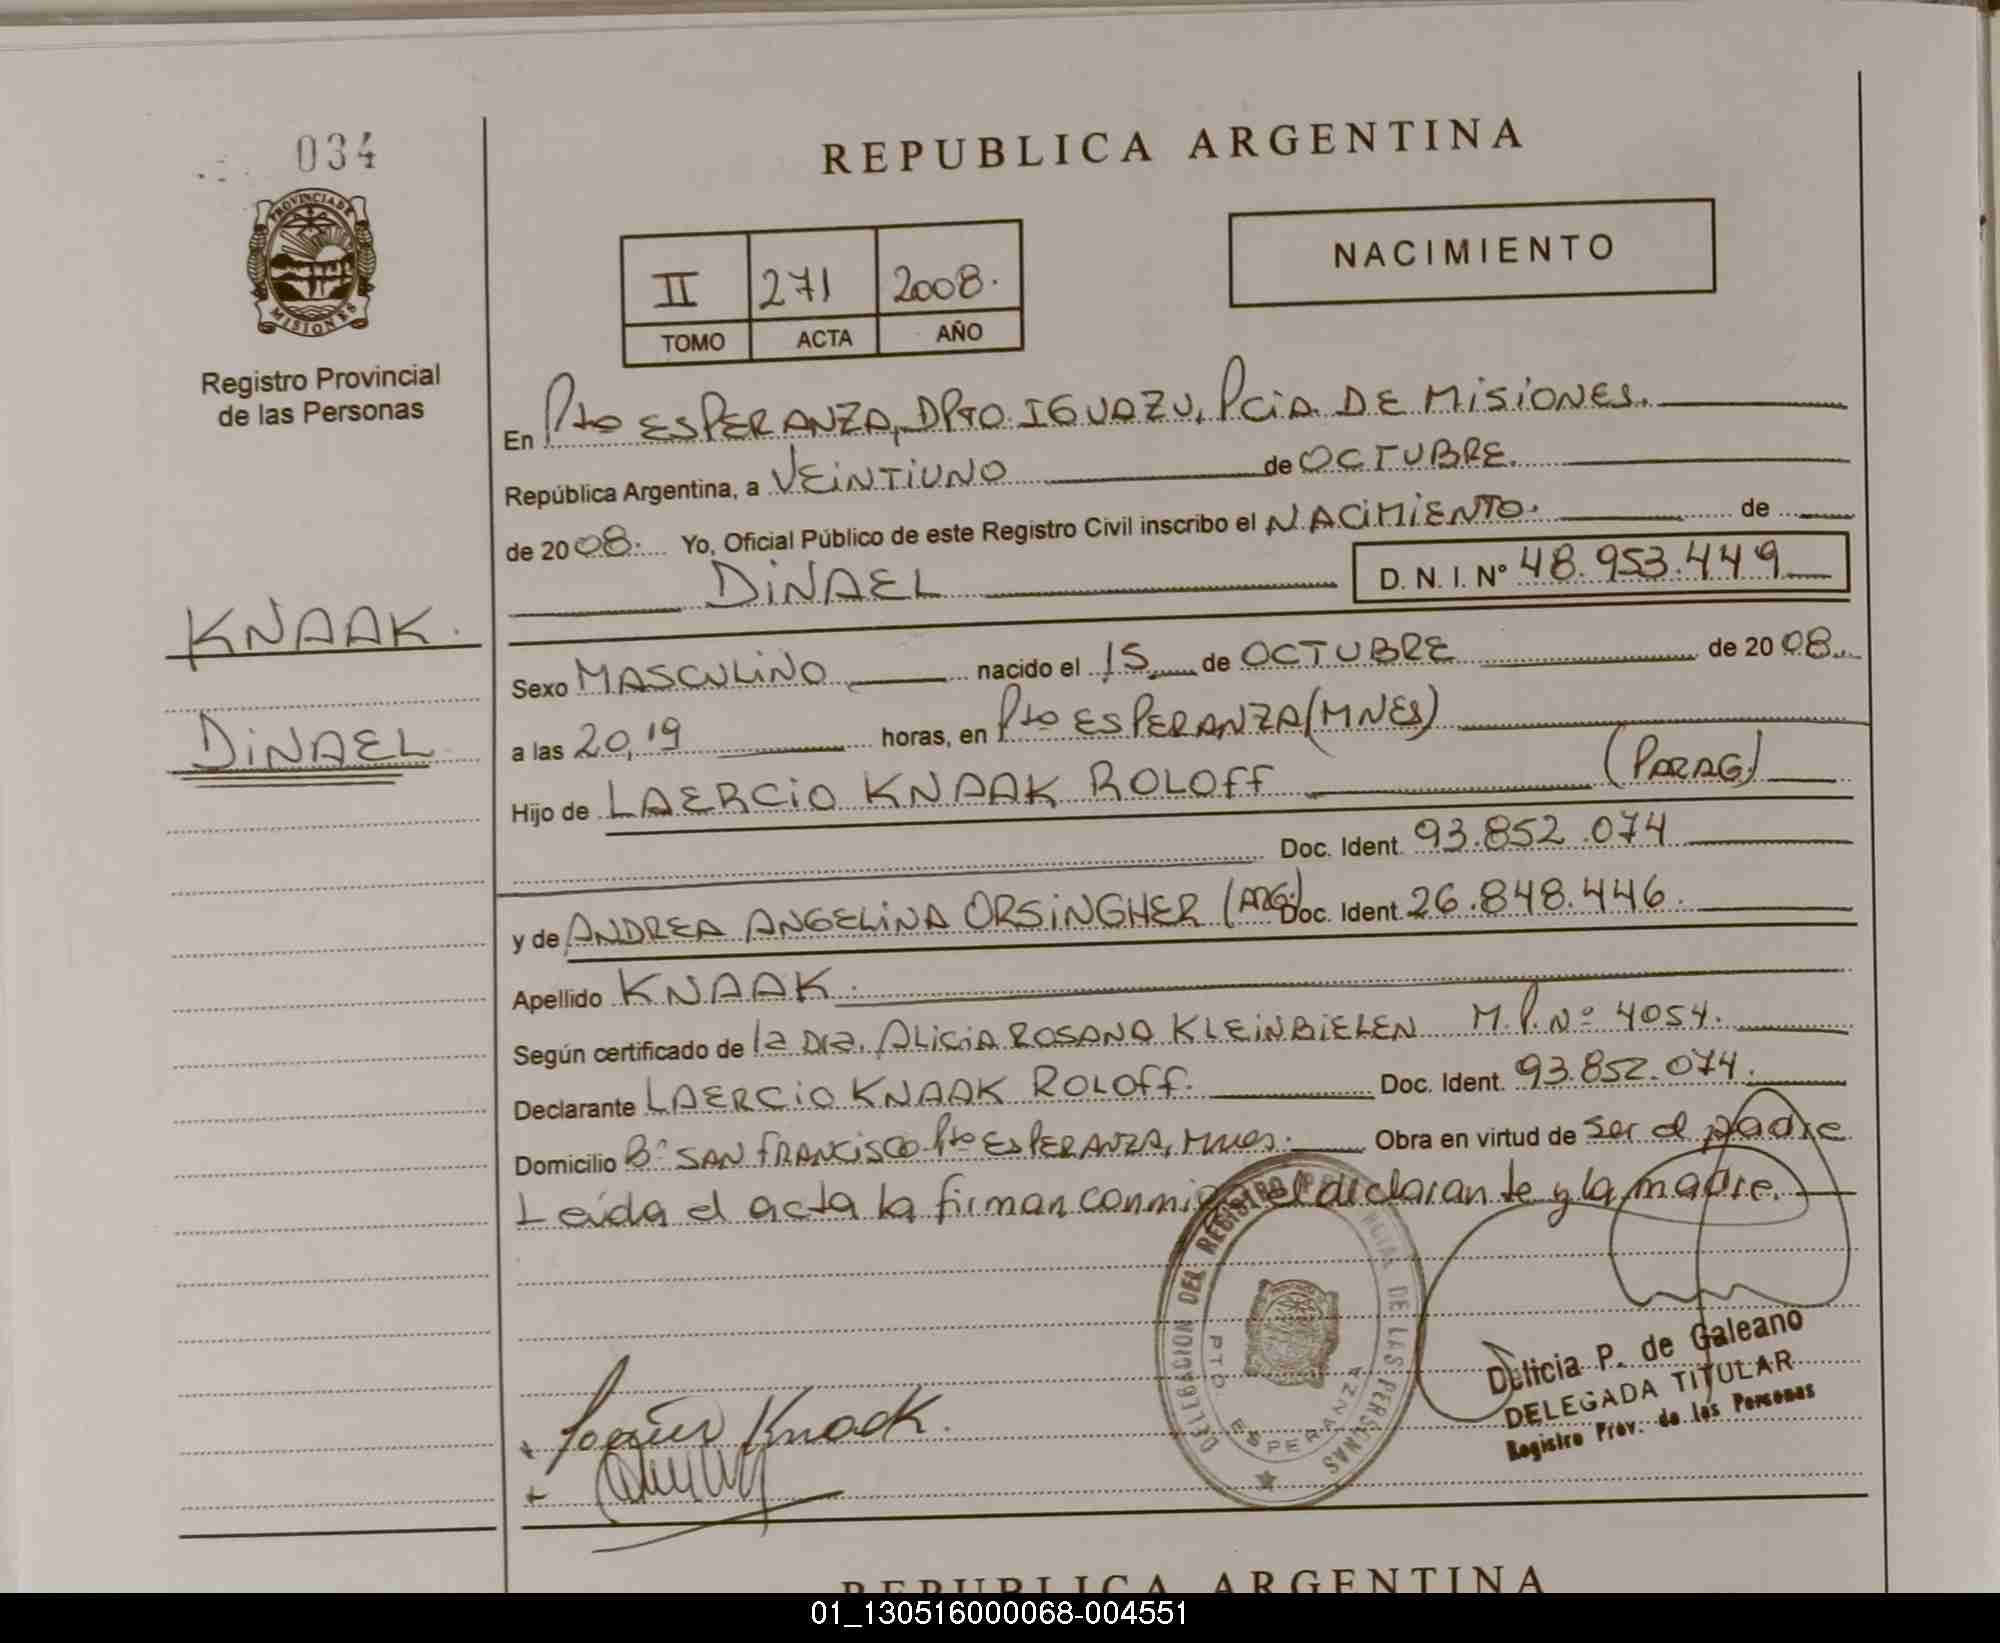 034
PROVINCIA DE
MISIONES
Registro Provincial
de las Personas
KNAAK.
DINAEL
REPUBLICA ARGENTINA
II 271 2008.
TOMO ACTA AÑO
NACIMIENTO
En Pto ESPERANZA, DPTO. IGUAZU, PCIA. DE MISIONES.
República Argentina, a VEINTIUNO de OCTUBRE.
de 2008. Yo, Oficial Público de este Registro Civil inscribo el NACIMIENTO. de
DINAEL D. N. I. Nº 48.953.449
Sexo MASCULINO nacido el 15 de OCTUBRE de 2008
a las 20,19 horas, en Pto ESPERANZA (MNES)
Hijo de LAERCIO KNAAK ROLOFF (PARAG.)
Doc. Ident. 93.852.074
y de ANDREA ANGELINA ORSINGHER (ARG.) Doc. Ident. 26.848.446.
Apellido KNAAK.
Según certificado de la Dra. ALICIA ROSANA KLEINBIELEN M.P. Nº 4054.
Declarante LAERCIO KNAAK ROLOFF. Doc. Ident. 93.852.074.
Domicilio Bº SAN FRANCISCO Pto ESPERANZA, Mnes. Obra en virtud de ser el padre
Leída el acta la firman conmigo el declarante y la madre.
DELEGACION DEL REGISTRO PROVINCIAL DE LAS PERSONAS
PTO. ESPERANZA
Delicia P. de Galeano
DELEGADA TITULAR
Registro Prov. de las Personas
Knaak.
REPUBLICA ARGENTINA
01_130516000068-004551